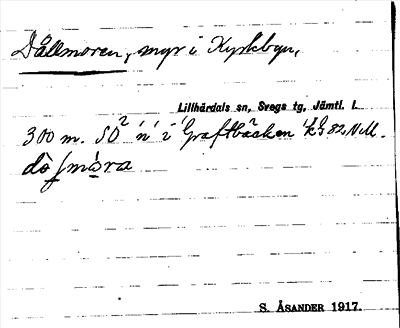 Dållmoren, myr i Kyrkbyn,
Lillhärdals sn, Svegs tg, Jämtl. l.
300 m. SO "n" i Graftbäcken kg 82, N.M.
S. ÅSANDER 1917.